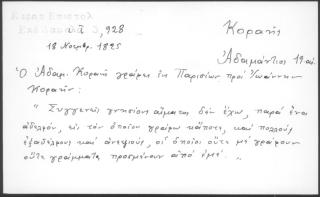 ιι, 928
Κοραής
18 Νοεμβρ. 1825
Ἀδαμάντιος
Ὁ Ἀδαμ. Κοραής γράφει ἐκ Παρισίων πρὸς Ἰωάννην
Κοραήν:
" Συγγενεῖς γνησίου αἵματος δὲν ἔχω, παρὰ ἕνα
ἀδελφόν, εἰς τὸν ὁποῖον γράφω κάποτε, καὶ πολλοὺς
ἐξαδέλφους καὶ ἀνεψιούς, οἱ ὁποῖοι οὔτε μὲ γράφουν
οὔτε γράμματα προσμένουν ἀπὸ ἐμέ. "